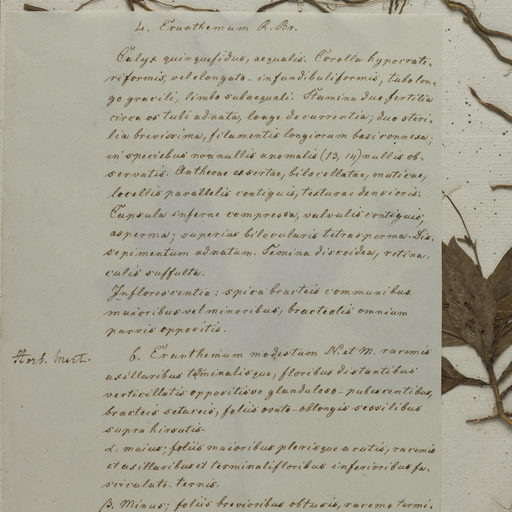 4. Eranthemum R. Br.
Calyx quinquefidus, aequalis. Corolla hypocrate-
riformis, vel elongato-infundibuliformis, tubo lon-
go gracili, limbo subaequali. Stamina duo fertilia
circa os tubi adnata, longe decurrentia; duo steri-
lia brevissima, filamentis longiorum basi connexa;
in speciebus nonnullis anomalis (13, 14) nullis ob-
servatis. Antherae exsertae, bilocellatae, muticae,
locellis parallelis contiguis, texturae densioris.
Capsula inferne compressa, valvulis contiguis,
asperma; superius bilocularis tetrasperma. Dis-
sepimentum adnatum. Semina discoidea, retina-
culis suffulta.
Inflorescentia: spica bracteis communibus
maioribus vel minoribus, bracteolis omnium
parvis oppositis.
Herb. Mart.
6. Eranthemum modestum N. et M. racemis
axillaribus terminalisque, floribus distantibus
verticillatis oppositisve glanduloso-pubescentibus,
bracteis setaceis, foliis ovato-oblongis sessilibus
supra hirsutis.
α. maius; foliis maioribus plerisque acutis, racemis
et axillaribus et terminali floribus inferioribus fa-
sciculato-ternis.
β. Minus; foliis brevioribus obtusis, racemo termi-